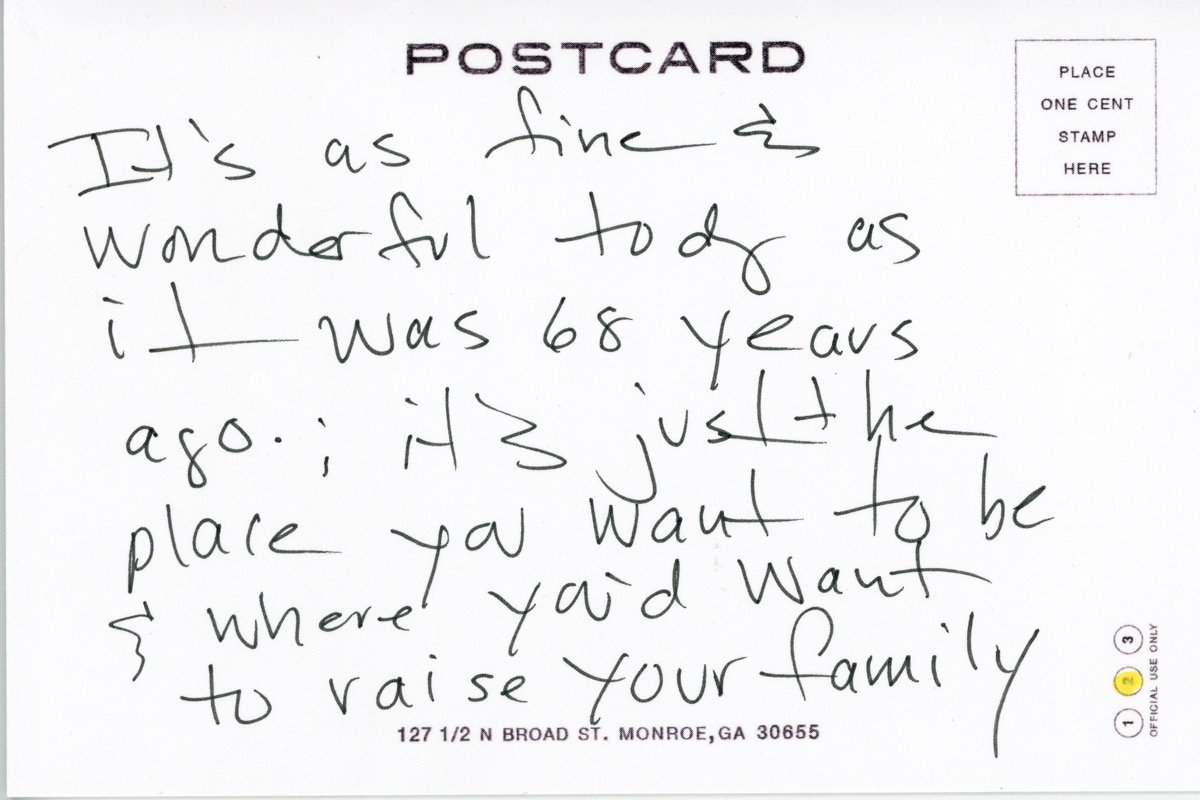 POSTCARD
PLACE
ONE CENT
STAMP
HERE
It's as fine &
wonderful today as
it was 68 years
ago. ; it's just the
place you want to be
& where you'd want
to raise your family
127 1/2 N BROAD ST. MONROE, GA 30655
1 2 3
OFFICIAL USE ONLY